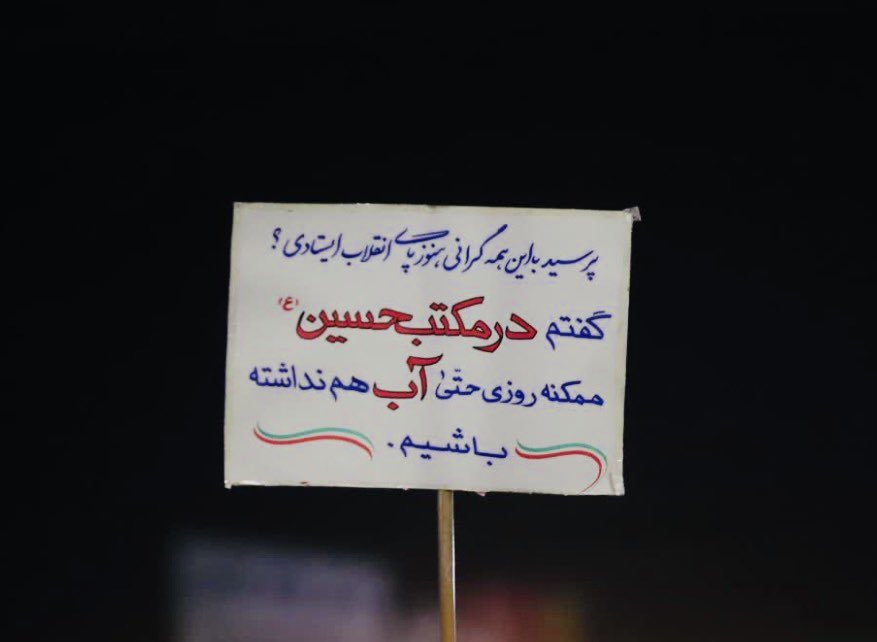 پرسید با این همه گرانی هنوز پای انقلاب ایستادی؟
گفتم در مکتب حسین (ع)
ممکنه روزی حتّیٰ آب هم نداشته
باشیم.